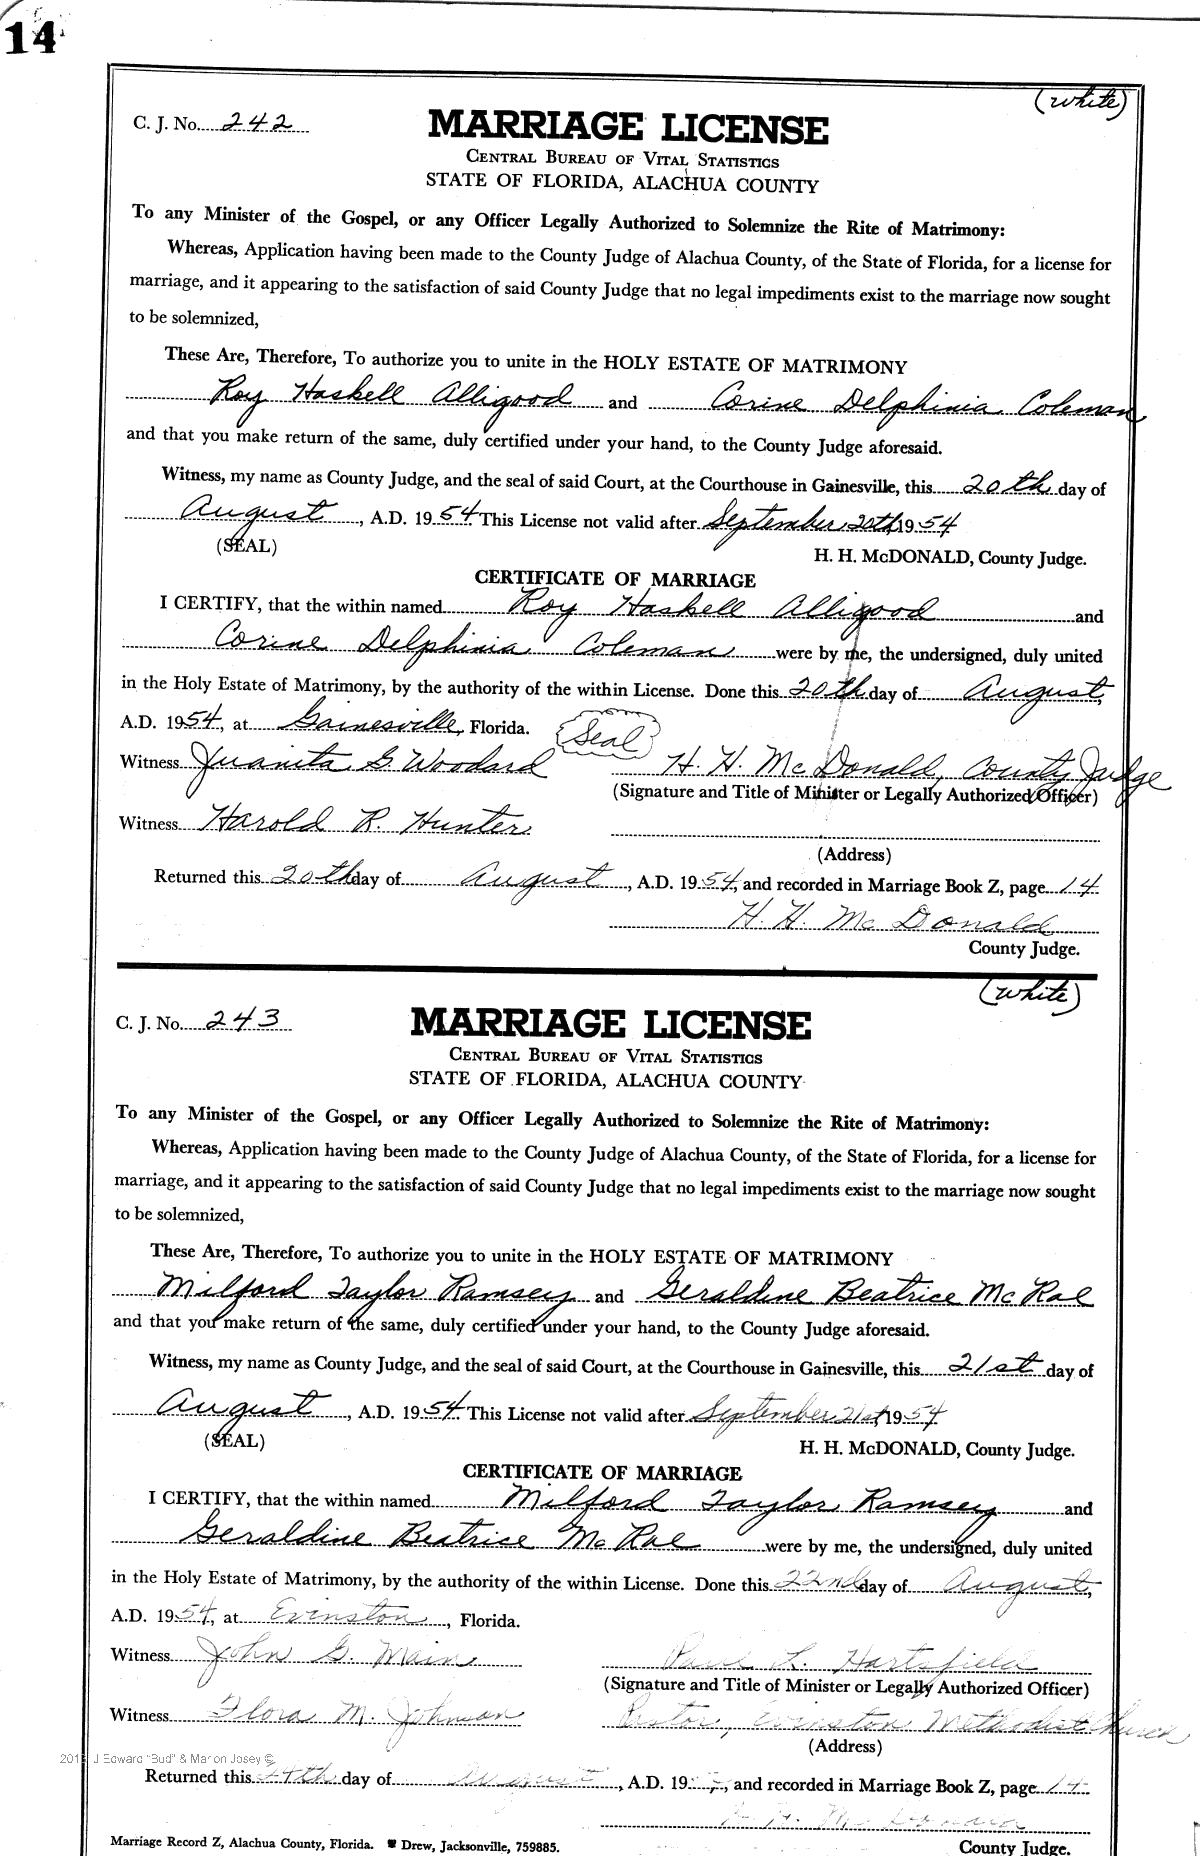 14
(White)
C. J. No. 242
MARRIAGE LICENSE
CENTRAL BUREAU OF VITAL STATISTICS
STATE OF FLORIDA, ALACHUA COUNTY
To any Minister of the Gospel, or any Officer Legally Authorized to Solemnize the Rite of Matrimony:
Whereas, Application having been made to the County Judge of Alachua County, of the State of Florida, for a license for
marriage, and it appearing to the satisfaction of said County Judge that no legal impediments exist to the marriage now sought
to be solemnized,
These Are, Therefore, To authorize you to unite in the HOLY ESTATE OF MATRIMONY
Roy Haskell Alligood and Corine Delphinia Coleman
and that you make return of the same, duly certified under your hand, to the County Judge aforesaid.
Witness, my name as County Judge, and the seal of said Court, at the Courthouse in Gainesville, this 20th day of
August, A.D. 1954. This License not valid after September 20th, 1954
(SEAL)
H. H. McDONALD, County Judge.
CERTIFICATE OF MARRIAGE
I CERTIFY, that the within named Roy Haskell Alligood and
Corine Delphinia Coleman were by me, the undersigned, duly united
in the Holy Estate of Matrimony, by the authority of the within License. Done this 20th day of August,
A.D. 1954, at Gainesville, Florida. Seal
Witness Juanita G. Woodard H. H. McDonald, County Judge
(Signature and Title of Minister or Legally Authorized Officer)
Witness Harold R. Hunter
(Address)
Returned this 20th day of August, A.D. 1954, and recorded in Marriage Book Z, page 14
H. H. McDonald
County Judge.
(White)
C. J. No. 243
MARRIAGE LICENSE
CENTRAL BUREAU OF VITAL STATISTICS
STATE OF FLORIDA, ALACHUA COUNTY
To any Minister of the Gospel, or any Officer Legally Authorized to Solemnize the Rite of Matrimony:
Whereas, Application having been made to the County Judge of Alachua County, of the State of Florida, for a license for
marriage, and it appearing to the satisfaction of said County Judge that no legal impediments exist to the marriage now sought
to be solemnized,
These Are, Therefore, To authorize you to unite in the HOLY ESTATE OF MATRIMONY
Milford Taylor Ramsey and Geraldine Beatrice McRae
and that you make return of the same, duly certified under your hand, to the County Judge aforesaid.
Witness, my name as County Judge, and the seal of said Court, at the Courthouse in Gainesville, this 21st day of
August, A.D. 1954. This License not valid after September 21st, 1954
(SEAL)
H. H. McDONALD, County Judge.
CERTIFICATE OF MARRIAGE
I CERTIFY, that the within named Milford Taylor Ramsey and
Geraldine Beatrice McRae were by me, the undersigned, duly united
in the Holy Estate of Matrimony, by the authority of the within License. Done this 22nd day of August,
A.D. 1954, at Evinston, Florida.
Witness John G. Main Paul L. Hartsfield
(Signature and Title of Minister or Legally Authorized Officer)
Witness Flora M. Johnson Pastor, Evinston Methodist Church
(Address)
J Edward "Bud" & Marion Josey ©
Returned this 24th day of August, A.D. 19, and recorded in Marriage Book Z, page 14
H. H. McDonald
County Judge.
Marriage Record Z, Alachua County, Florida. Drew, Jacksonville, 759885.